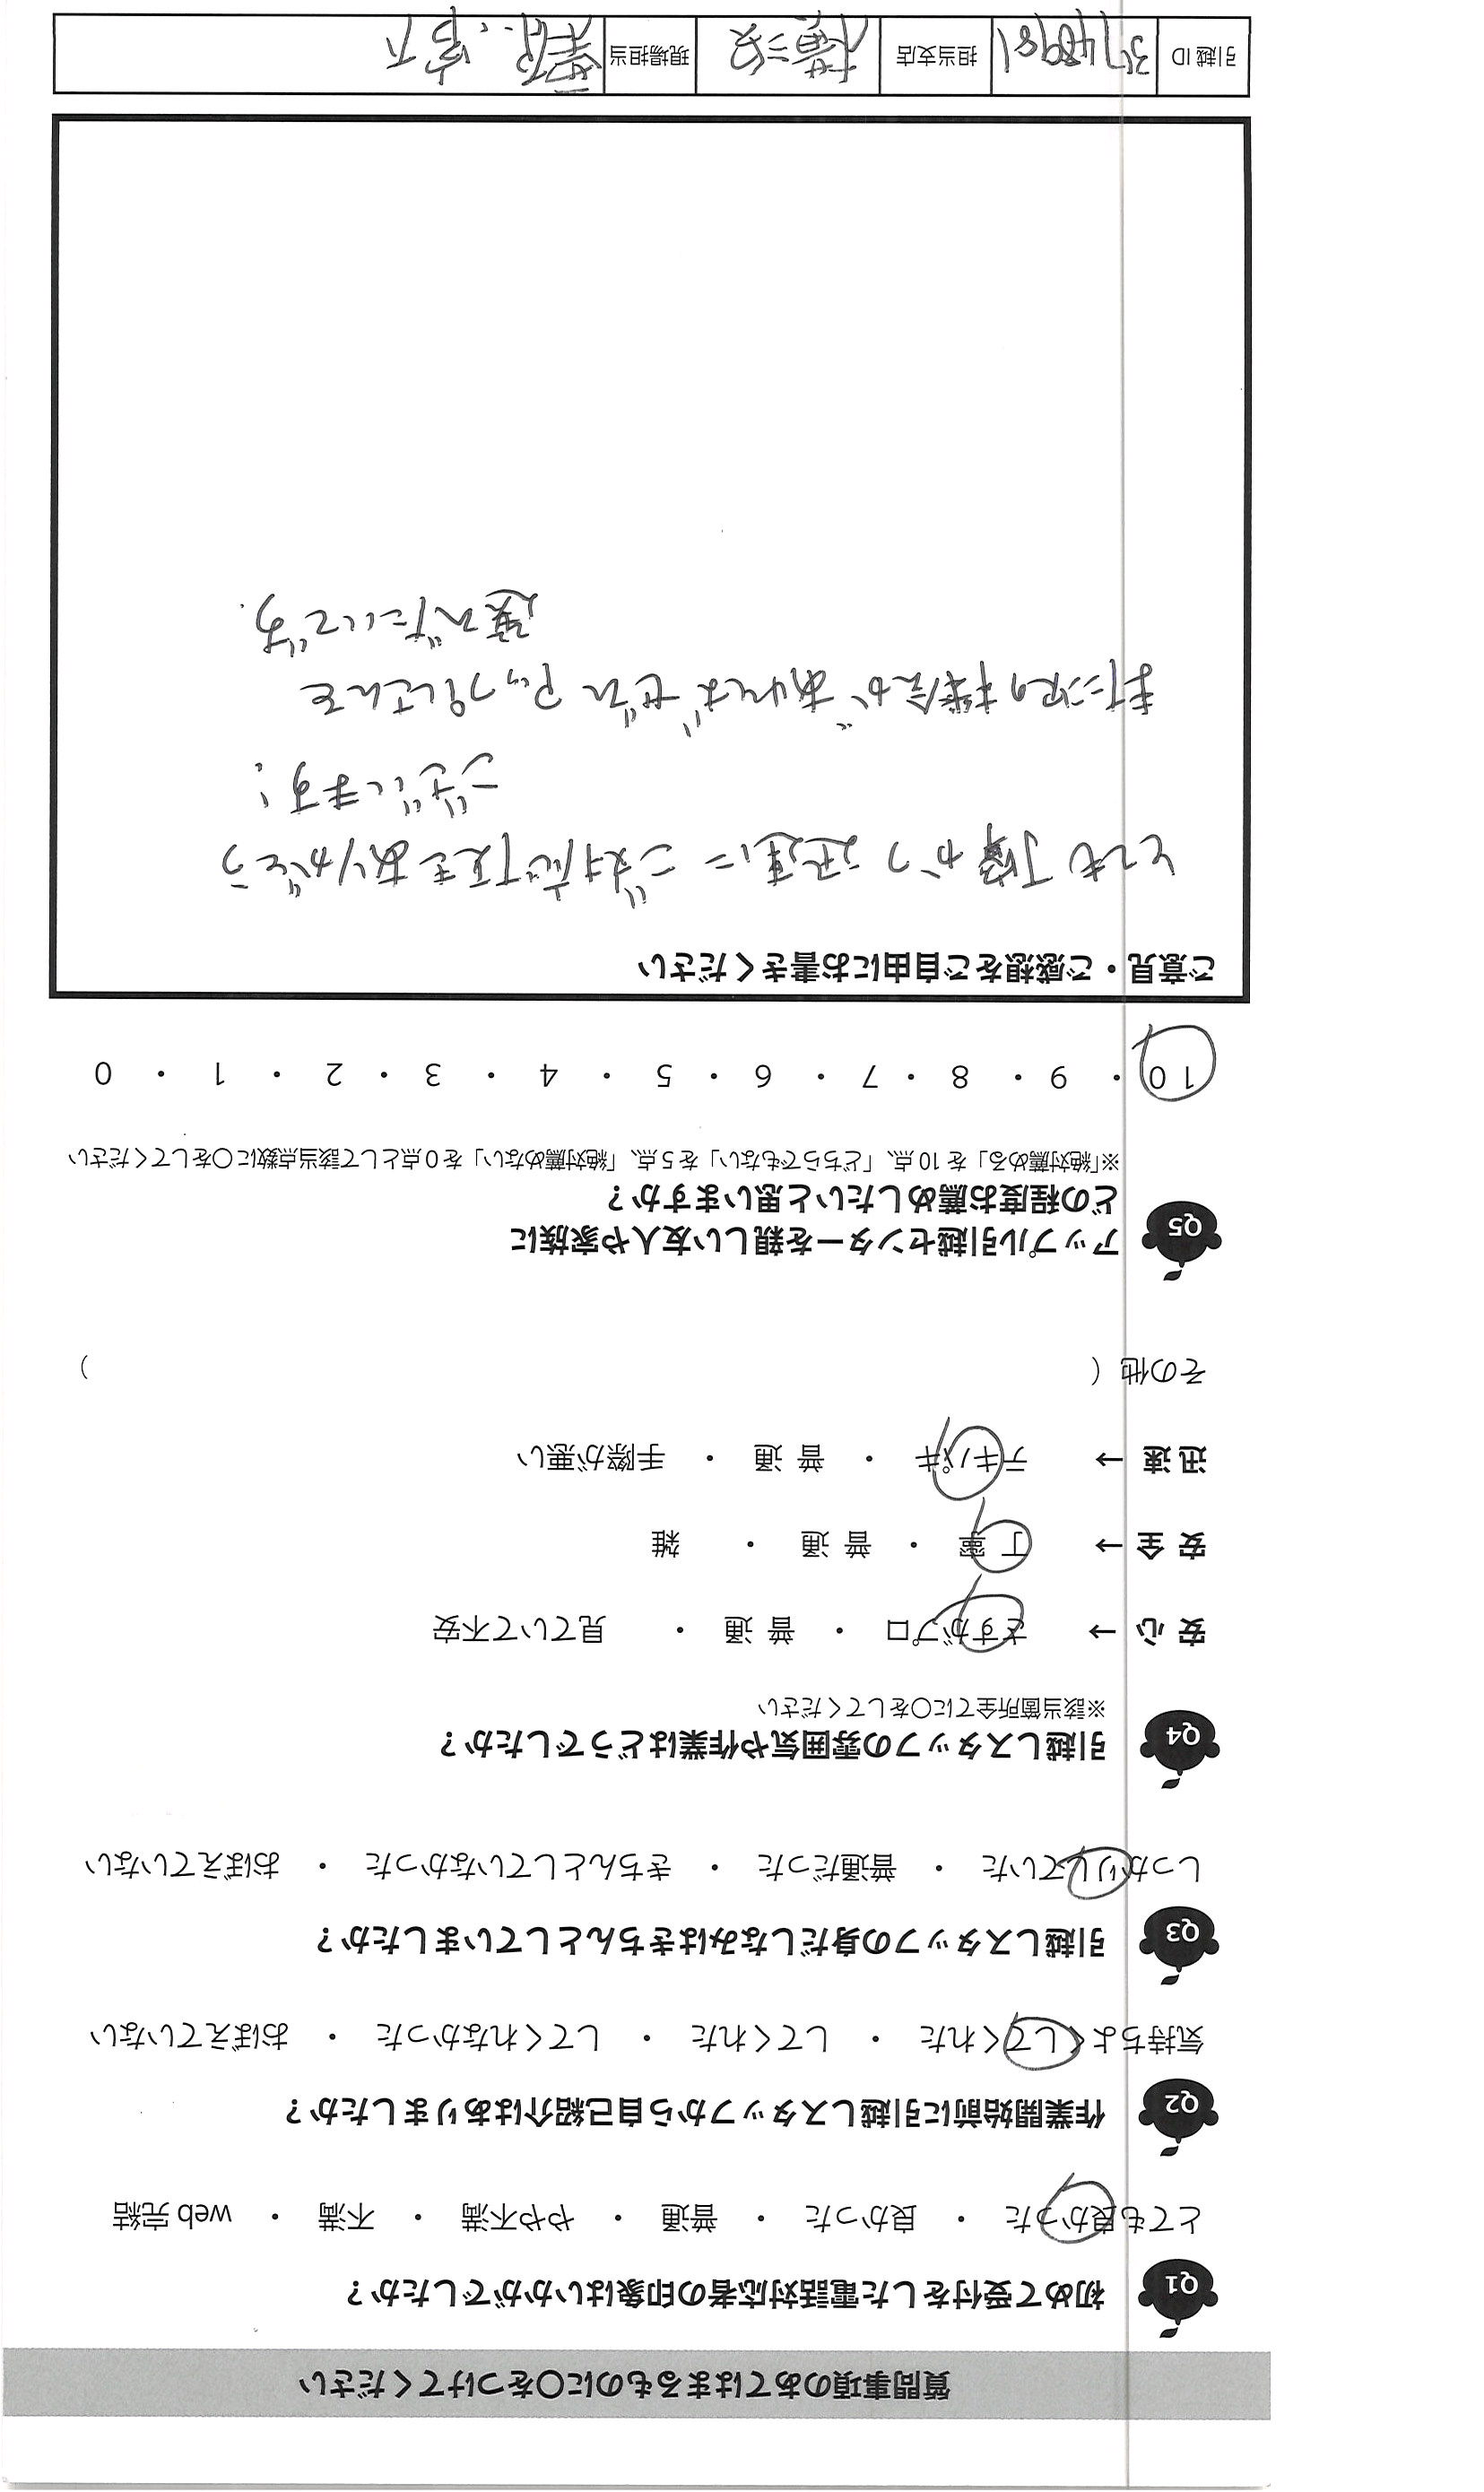 質問事項のあてはまるものに○をつけてください
Q1 初めて受付をした電話対応者の印象はいかがでしたか？
とても良かった ・ 良かった ・ 普通 ・ やや不満 ・ 不満 ・ web完結
Q2 作業開始前に引越しスタッフから自己紹介はありましたか？
気持ちよくしてくれた ・ してくれた ・ してくれなかった ・ おぼえていない
Q3 引越しスタッフの身だしなみはきちんとしていましたか？
しっかりしていた ・ 普通だった ・ きちんとしていなかった ・ おぼえていない
Q4 引越しスタッフの雰囲気や作業はどうでしたか？
※該当箇所全てに○をしてください
安心 → さすがプロ ・ 普通 ・ 見ていて不安
安全 → 丁寧 ・ 普通 ・ 雑
迅速 → テキパキ ・ 普通 ・ 手際が悪い
その他 （ ）
Q5 アップル引越センターを親しい友人や家族に
どの程度お薦めしたいと思いますか？
※「絶対薦める」を10点、「どちらでもない」を5点、「絶対薦めない」を0点として該当点数に○をしてください
10 ・ 9 ・ 8 ・ 7 ・ 6 ・ 5 ・ 4 ・ 3 ・ 2 ・ 1 ・ 0
ご意見・ご感想をご自由にお書きください
とても丁寧かつ迅速にご対応頂きありがとう
ございます！
また次の機会があればぜひアップルさんを
選びたいです.
引越ID 3748981 担当支店 横浜 現場担当 宮下